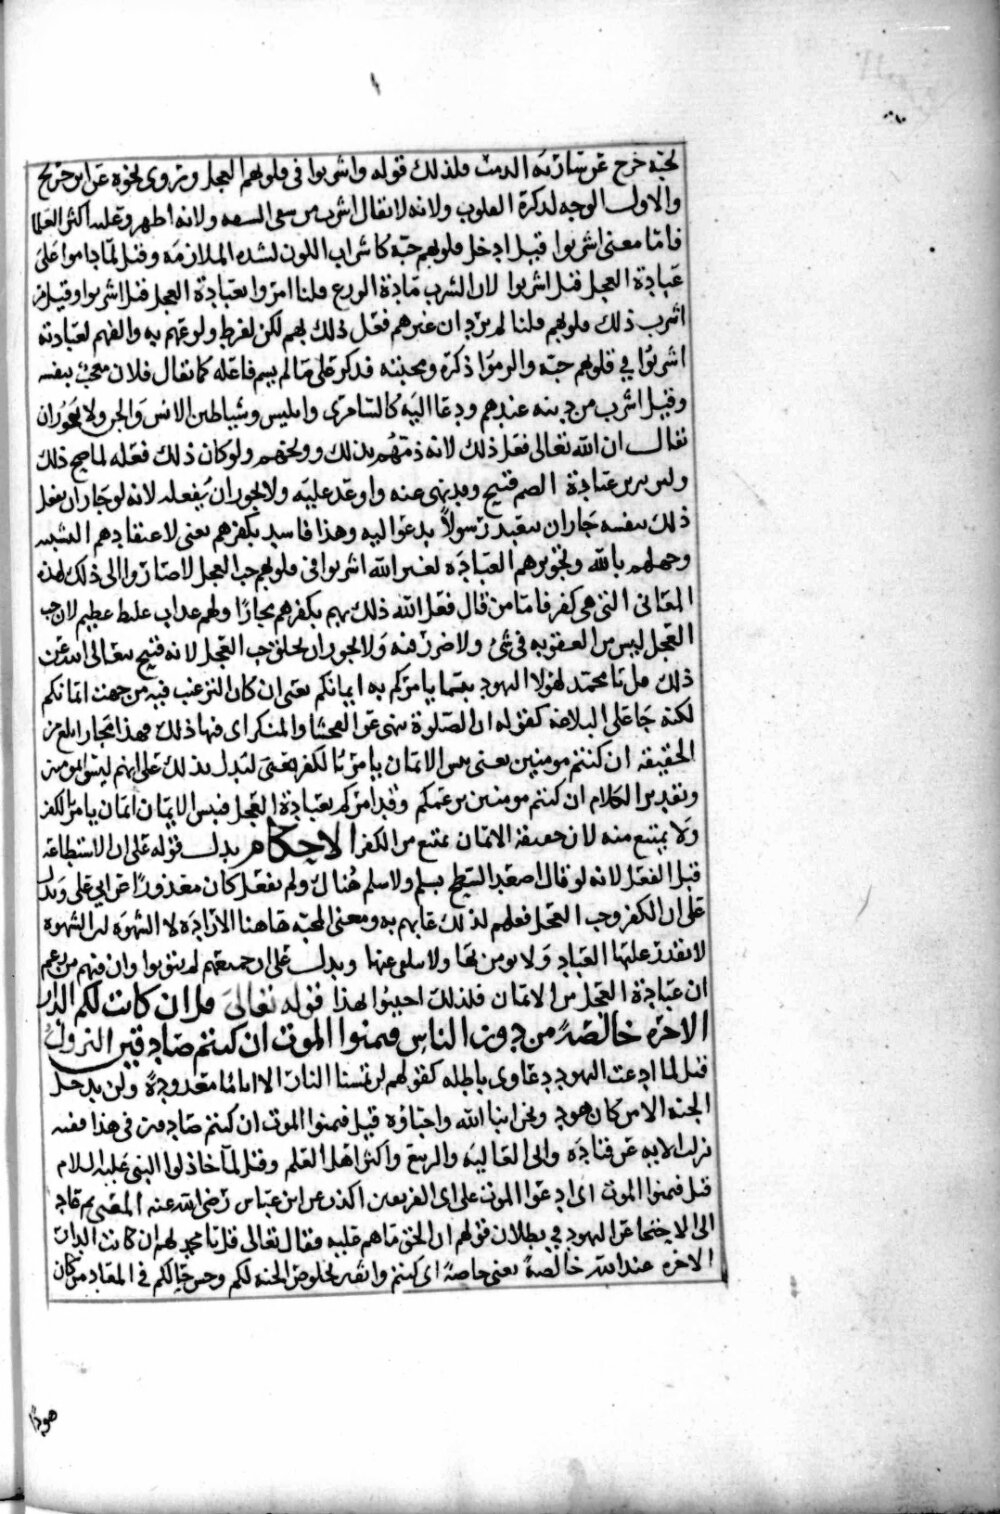 لحبه خرج على شاربه الذهب فلذلك قوله واشربوا في قلوبهم العجل وتروى نحوه عن ابن جريج
والاول الوجه لذكره القلوب ولانه لا يقال اشرب من سقى السقيه ولانه اظهر وعليه اكثر العلما
فاما معنى اشربوا قيل ادخل قلوبهم حبه كاشراب اللون لشده الملازمه وقيل لما داموا على
عبادة العجل قيل اشربوا لان الشرب مادة الزرع قلنا امروا بعبادة العجل قيل اشربوا وقيل من
اشرب ذلك قلوبهم قلنا لم يرد ان غيرهم فعل ذلك بهم لكن لفرط ولوعهم به والفهم لعبادته
اشربوا في قلوبهم حبه والزموا ذكره ومحبته فذكر على ما لم يسم فاعله كما يقال فلان معجب بنفسه
وقيل اشرب من زينه عندهم ودعا اليه كالسامرى وابليس وشياطين الانس والجن ولا يجوز ان
يقال ان الله تعالى فعل ذلك لانه ذمهم بذلك ووبخهم ولو كان ذلك فعله لما صح ذلك
وليس عبادة الصنم قبيح وقد نهى عنه واوعد عليه ولا يجوز ان يفعله لانه لو جاز ان يفعل
ذلك بنفسه جاز ان يبعث رسولاً يدعوا اليه وهذا فاسد بكفرهم يعنى لاعتقادهم التشبيه
وجهلهم بالله وتجويزهم العباده لغير الله اشربوا في قلوبهم حب العجل لا صاروا الى ذلك لهذه
المعانى التى هي كفر فاما من قال فعل الله ذلك بهم بكفرهم مجازا ولهم عذاب غلط عظيم لان حب
العجل ليس من العقوبه في شى ولا ضرر فيه ولا يجوز ان يخلق حب العجل لانه قبيح يتعالى الله عن
ذلك قل يا محمد لهؤلا اليهود بئسما يامركم به ايمانكم يعنى ان كان الترغيب فيه من جهت ايمانكم
لكنه جا على البلاغه كقوله ان الصلوة تنهى عن الفحشا والمنكر اى فيها ذلك فهذا مجاز ابلغ من
الحقيقه ان كنتم مومنين يعنى بئس الايمان يامر بالكفر فعنى ليدل بذلك على انهم ليسوا بمومنين
وتقدير الكلام ان كنتم مومنين بزعمكم وقد امركم بعبادة العجل فبئس الايمان ايمان يامر بالكفر
ولا يمتنع منه لان حقيقة الايمان تمنع من الكفر الاحكام يدل قوله على ان الاستطاعه
قبل الفعل لانه لو قال اصعد السطح بسلم ولا سلم هناك ولم يفعل كان معذوراً عن ابي على ويدل
على ان الكفر وحب العجل فعلهم لذلك عابهم به ومعنى المحبه هاهنا الاراده لا الشهوه لان الشهوه
لا يقدر عليها العباد ولا يومن بها ولا ينهى عنها ويدل على ان جميعهم لم يتوبوا وان فيهم من زعم
ان عبادة العجل من الايمان فلذلك اجيبوا بهذا قوله تعالى قل ان كانت لكم الدار
الاخره خالصةً من دون الناس فتمنوا الموت ان كنتم صادقين النزول
قيل لما ادعت اليهود دعاوى باطله كقولهم لن تمسنا النار الا اياما معدودةً ولن يدخل
الجنه الا من كان هود ونحن ابنا الله واحباؤه قيل فتمنوا الموت ان كنتم صادقين في هذا ففيه
نزلت الايه عن قتاده وابى العاليه والربيع واكثر اهل العلم وقيل لما خاذلوا النبى عليه السلام
قيل فتمنوا الموت اى ادعوا الموت على اى الفريقين اكذب عن ابن عباس رضى الله عنه المعنى ثم عاد
الى الاحتجاج على اليهود في بطلان قولهم ان الحق ما هم عليه فقال تعالى قل يا محمد لهم ان كانت الدار
الاخره عند الله خالصةً يعنى خاصةً اى كنتم واثقين بخلوص الجنه لكم وحسن حالكم في المعاد من كان
هودًا